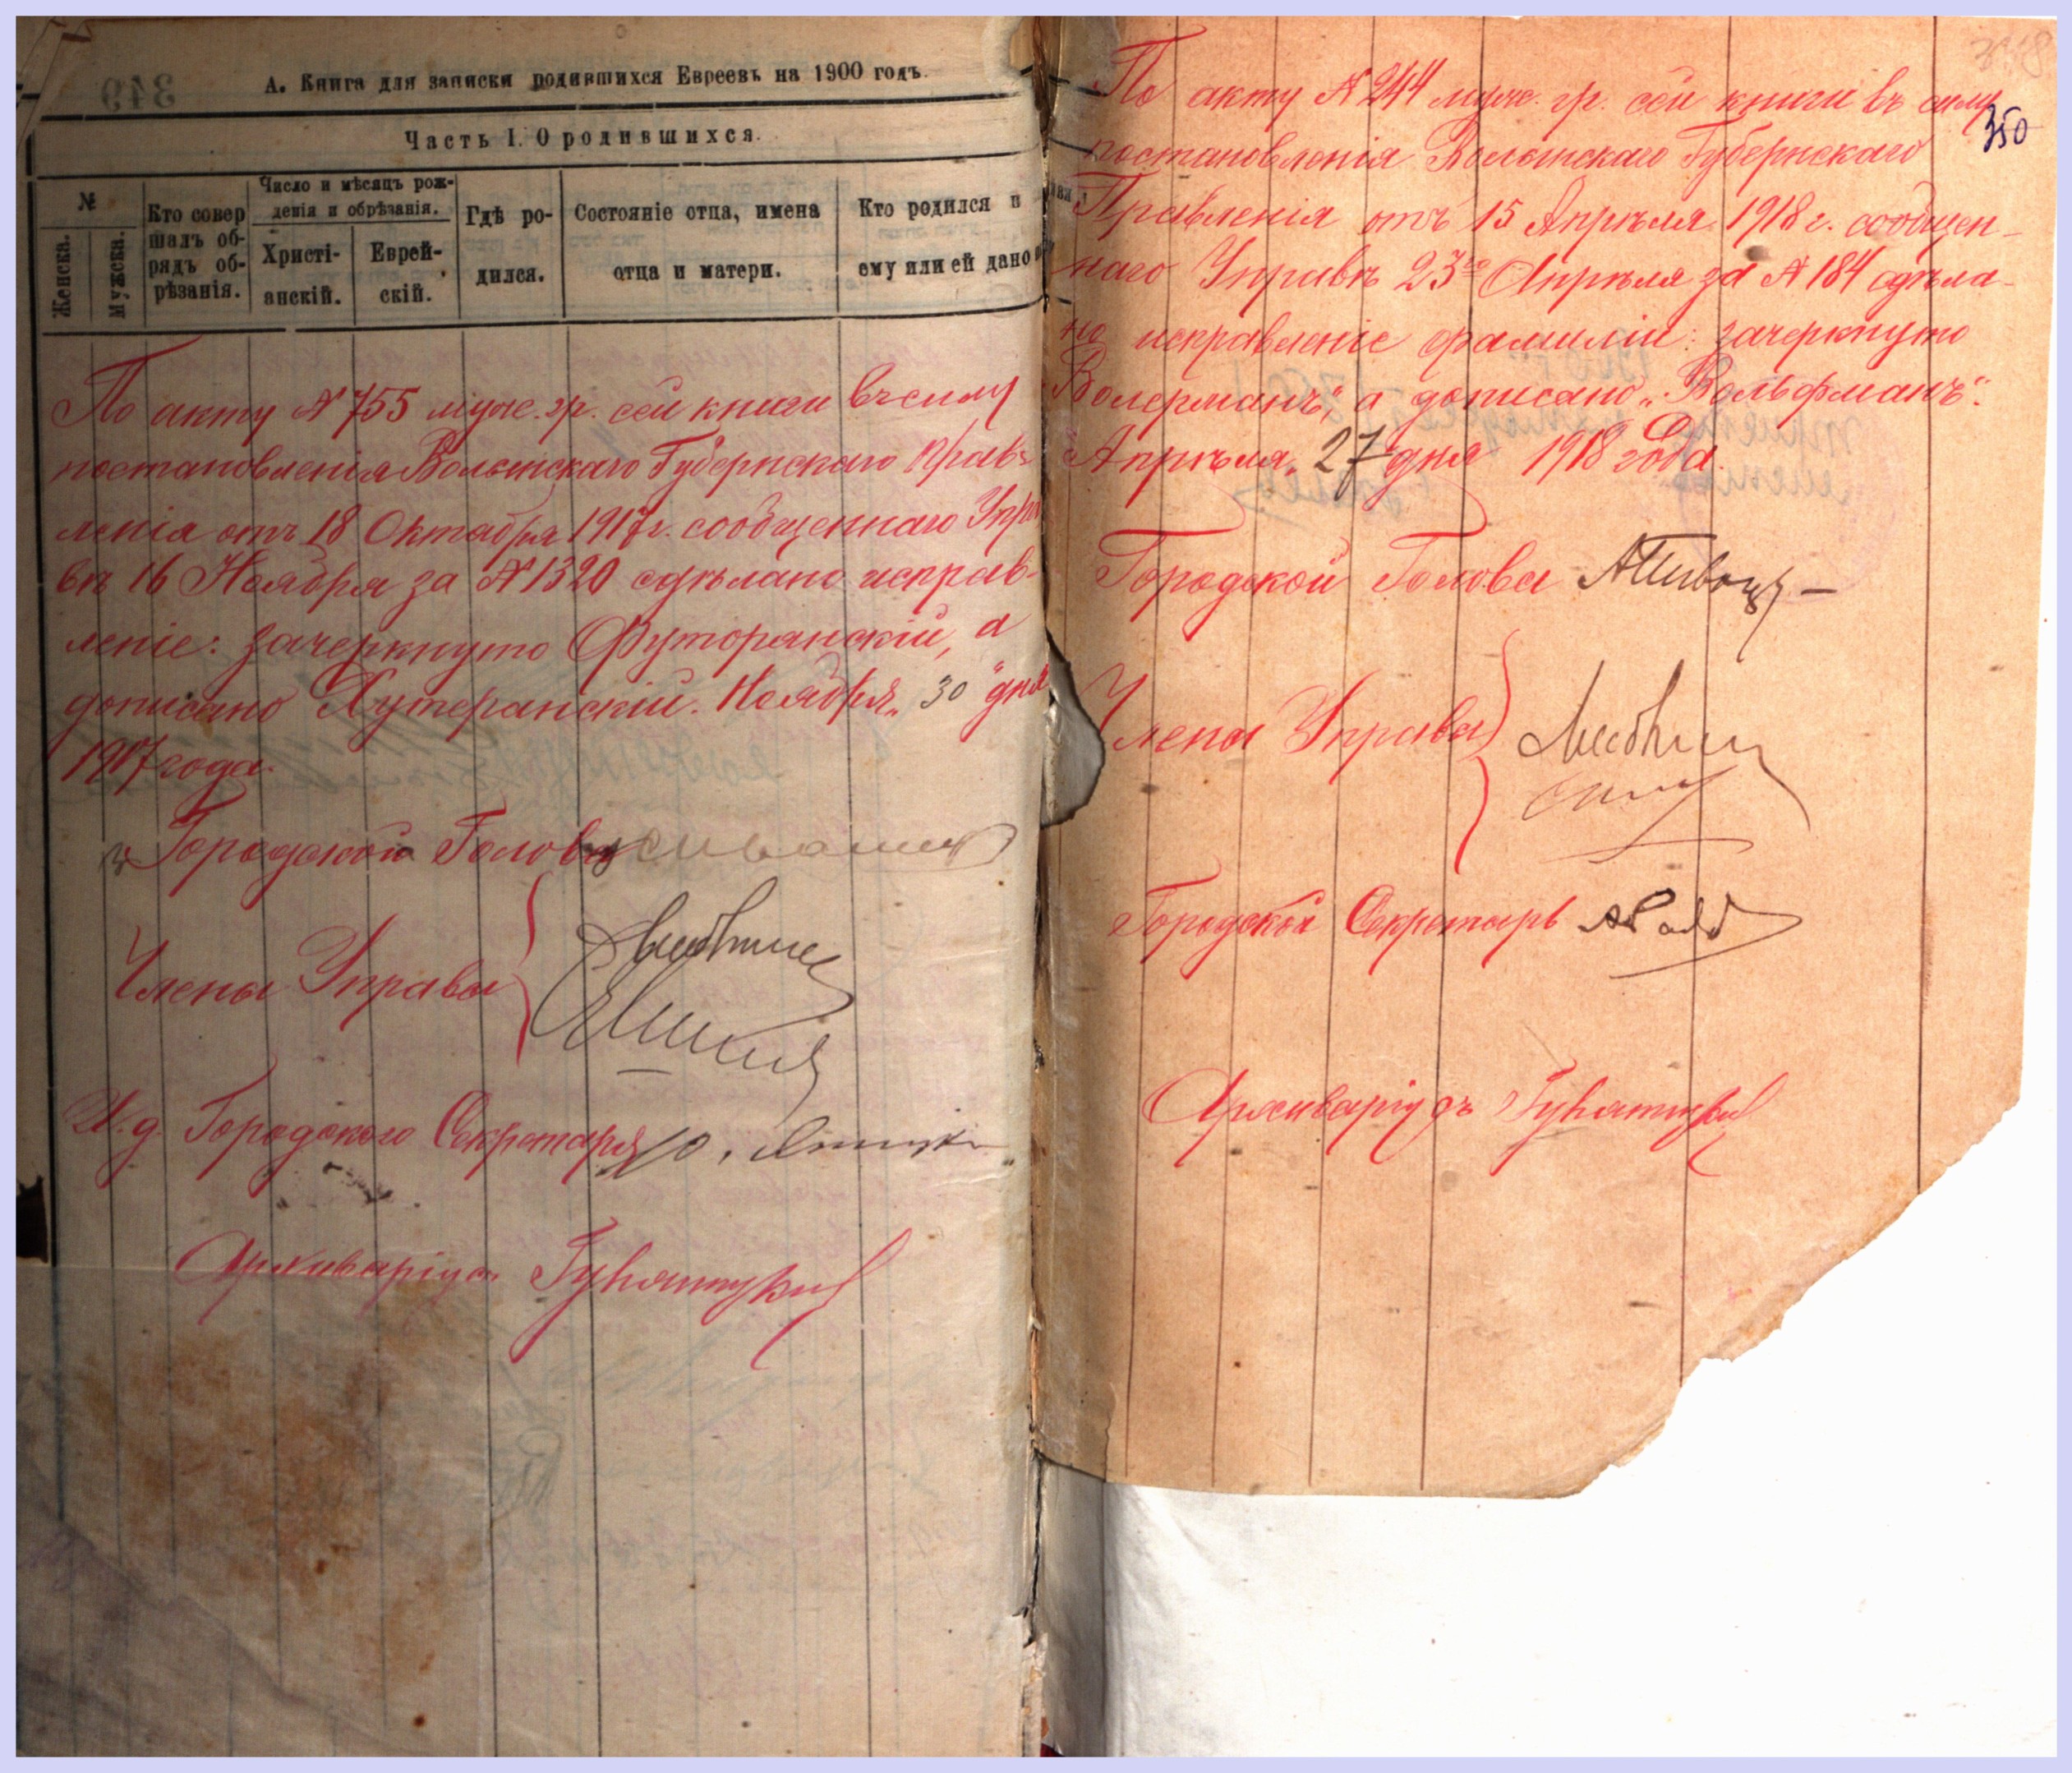 А. Книга для записки родившихся Евреевъ на 1900 годъ.
Часть I. О родившихся.
№
Женска.
Мужска.
Кто совер
шалъ об-
рядъ об-
рѣзанія.
Число и мѣсяцъ рож-
денія и обрѣзанія.
Христі-
анскій.
Еврей-
скій.
Гдѣ ро-
дился.
Состояніе отца, имена
отца и матери.
Кто родился и
ему или ей дано
По акту № 755 муже. гр. сей книги въ силу
постановленія Волынскаго Губернскаго Прав-
ленія отъ 18 Октября 1917 г. сообщеннаго Упра
вѣ 16 Ноября за № 1320 сдѣлано исправ-
леніе: зачеркнуто Футорянскій, а
дописано Хутеранскій. Ноября „30" дня
1917 года.
Городской Голова
Члены Управы
И. д. Городского Секретаря
Архиваріусъ
350
По акту № 244 муже. гр. сей книги въ силу
постановленія Волынскаго Губернскаго
Правленія отъ 15 Апрѣля 1918 г. сообщен-
наго Управѣ 23го Апрѣля за № 184 сдѣла-
но исправленіе фамиліи: зачеркнуто
Волерманъ", а дописано „Вольфманъ".
Апрѣля „27 дня 1918 года.
Городской Голова
Члены Управы
Городской Секретарь
Архиваріусъ